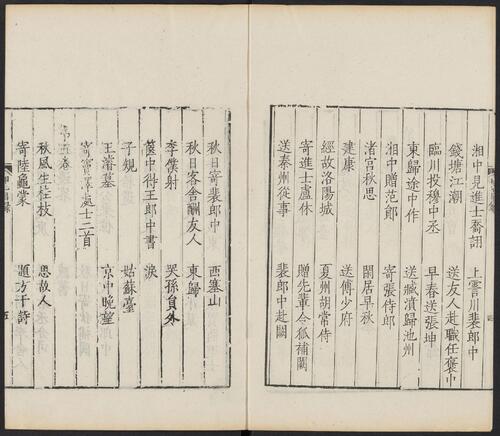 湘中見進士喬詡　上霅川裴郎中
錢塘江潮　送友人赴職任褒中
臨川投穆中丞　早春送張坤
東歸途中作　送臧濆歸池州
湘中贈范郎　寄張侍郎
渚宮秋思　閑居早秋
建康　送傅少府
經故洛陽城　夏州胡常侍
寄進士盧休　贈先輩令狐補闕
送秦州從事　裴郎中赴闕
秋日寄裴郎中　西塞山
秋日客舍酬友人　東歸
李僕射　哭孫員外
篋中得王郎中書　淚
子規　姑蘇臺
王濬墓　京中晚望
寄竇澤處士二首
第五卷
秋風生桂枝　思故人
寄陸龜蒙　題方干詩
五